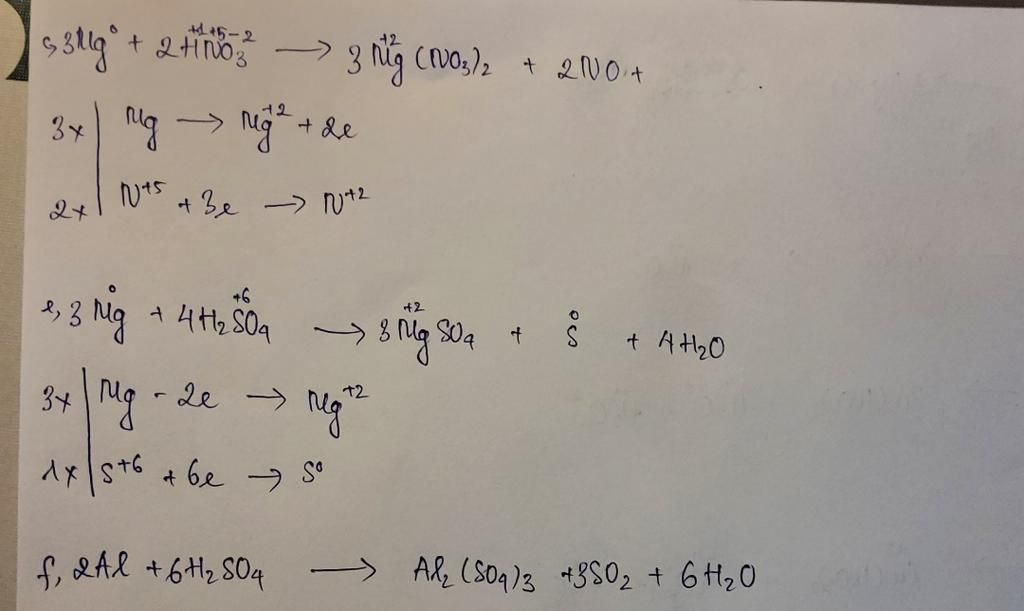 c, 3Mg⁰ + 2H⁺¹N⁺⁵O₃⁻² → 3Mg⁺²(NO₃)₂ + 2NO +
3x | Mg → Mg⁺² + 2e
2x | N⁺⁵ + 3e → N⁺²
e, 3Mg⁰ + 4H₂S⁺⁶O₄ → 3Mg⁺²SO₄ + S⁰ + 4H₂O
3x | Mg - 2e → Mg⁺²
1x | S⁺⁶ + 6e → S⁰
f, 2Al + 6H₂SO₄ → Al₂(SO₄)₃ + 3SO₂ + 6H₂O